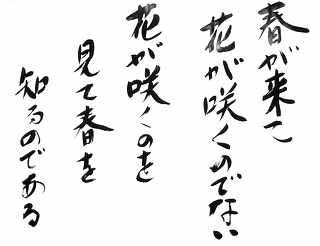 春が来て
花が咲くのでない
花が咲くのを
見て春を
知るのである